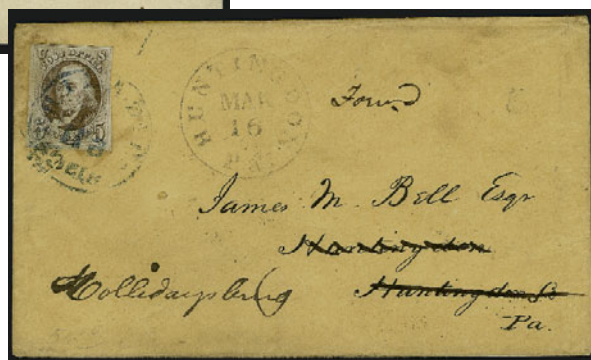 POST OFFICE
5 5
HUNTINGDON
MAR
16
PA
Forwd
James M. Bell Esqr
Huntingdon
Hollidaysburg Huntingdon Co
Pa.